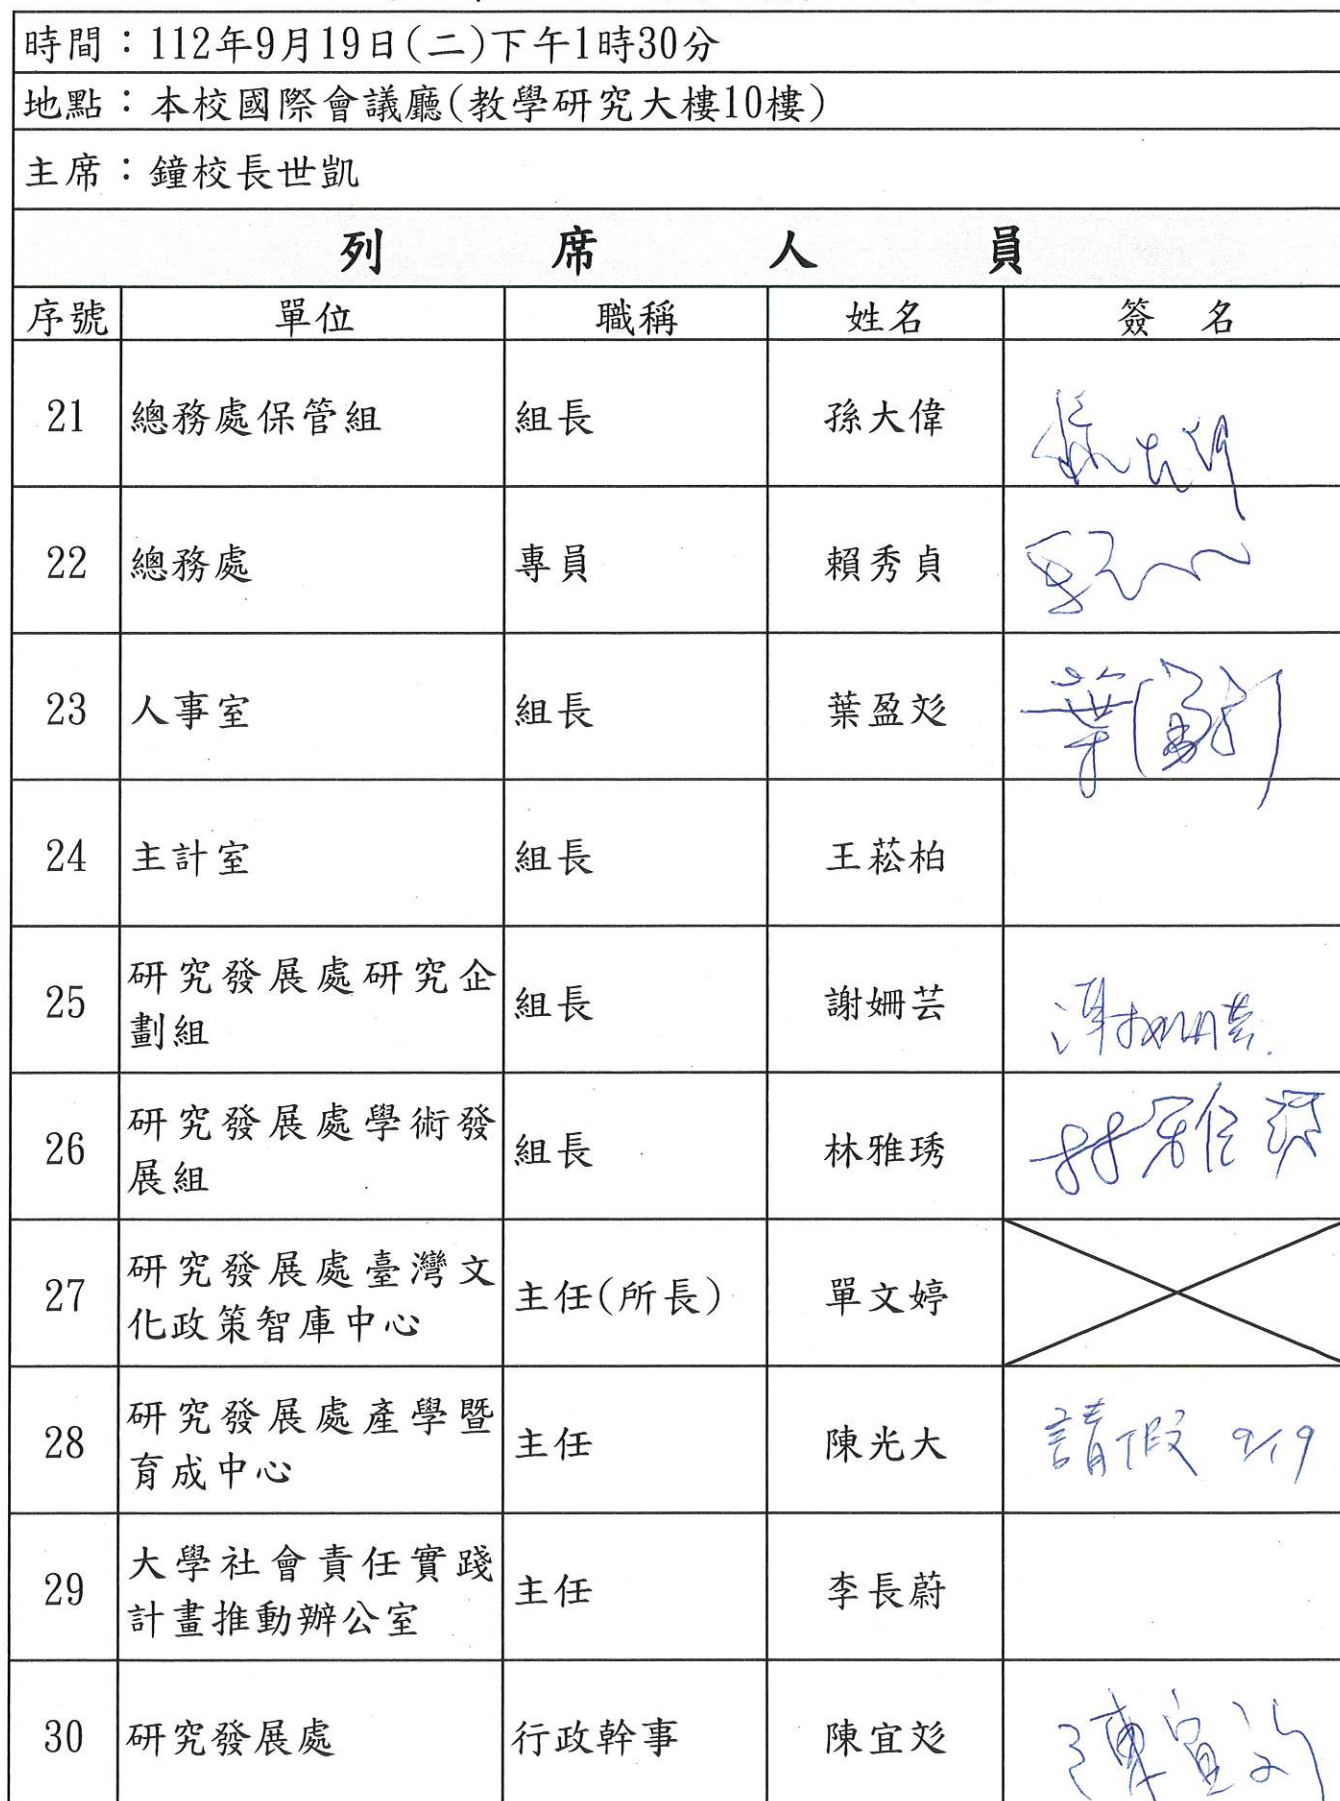 時間：112年9月19日(二)下午1時30分
地點：本校國際會議廳(教學研究大樓10樓)
主席：鐘校長世凱
列席人員
序號 單位 職稱 姓名 簽名
21 總務處保管組 組長 孫大偉 孫大偉
22 總務處 專員 賴秀貞
23 人事室 組長 葉盈彣 葉盈彣
24 主計室 組長 王菘柏
研究發展處研究企
25 組長 謝姍芸 謝姍芸
劃組
研究發展處學術發
26 組長 林雅琇 林雅琇
展組
研究發展處臺灣文
27 主任(所長) 單文婷
化政策智庫中心
研究發展處產學暨
28 主任 陳光大 請假 9/19
育成中心
大學社會責任實踐
29 主任 李長蔚
計畫推動辦公室
30 研究發展處 行政幹事 陳宜彣 陳宜彣